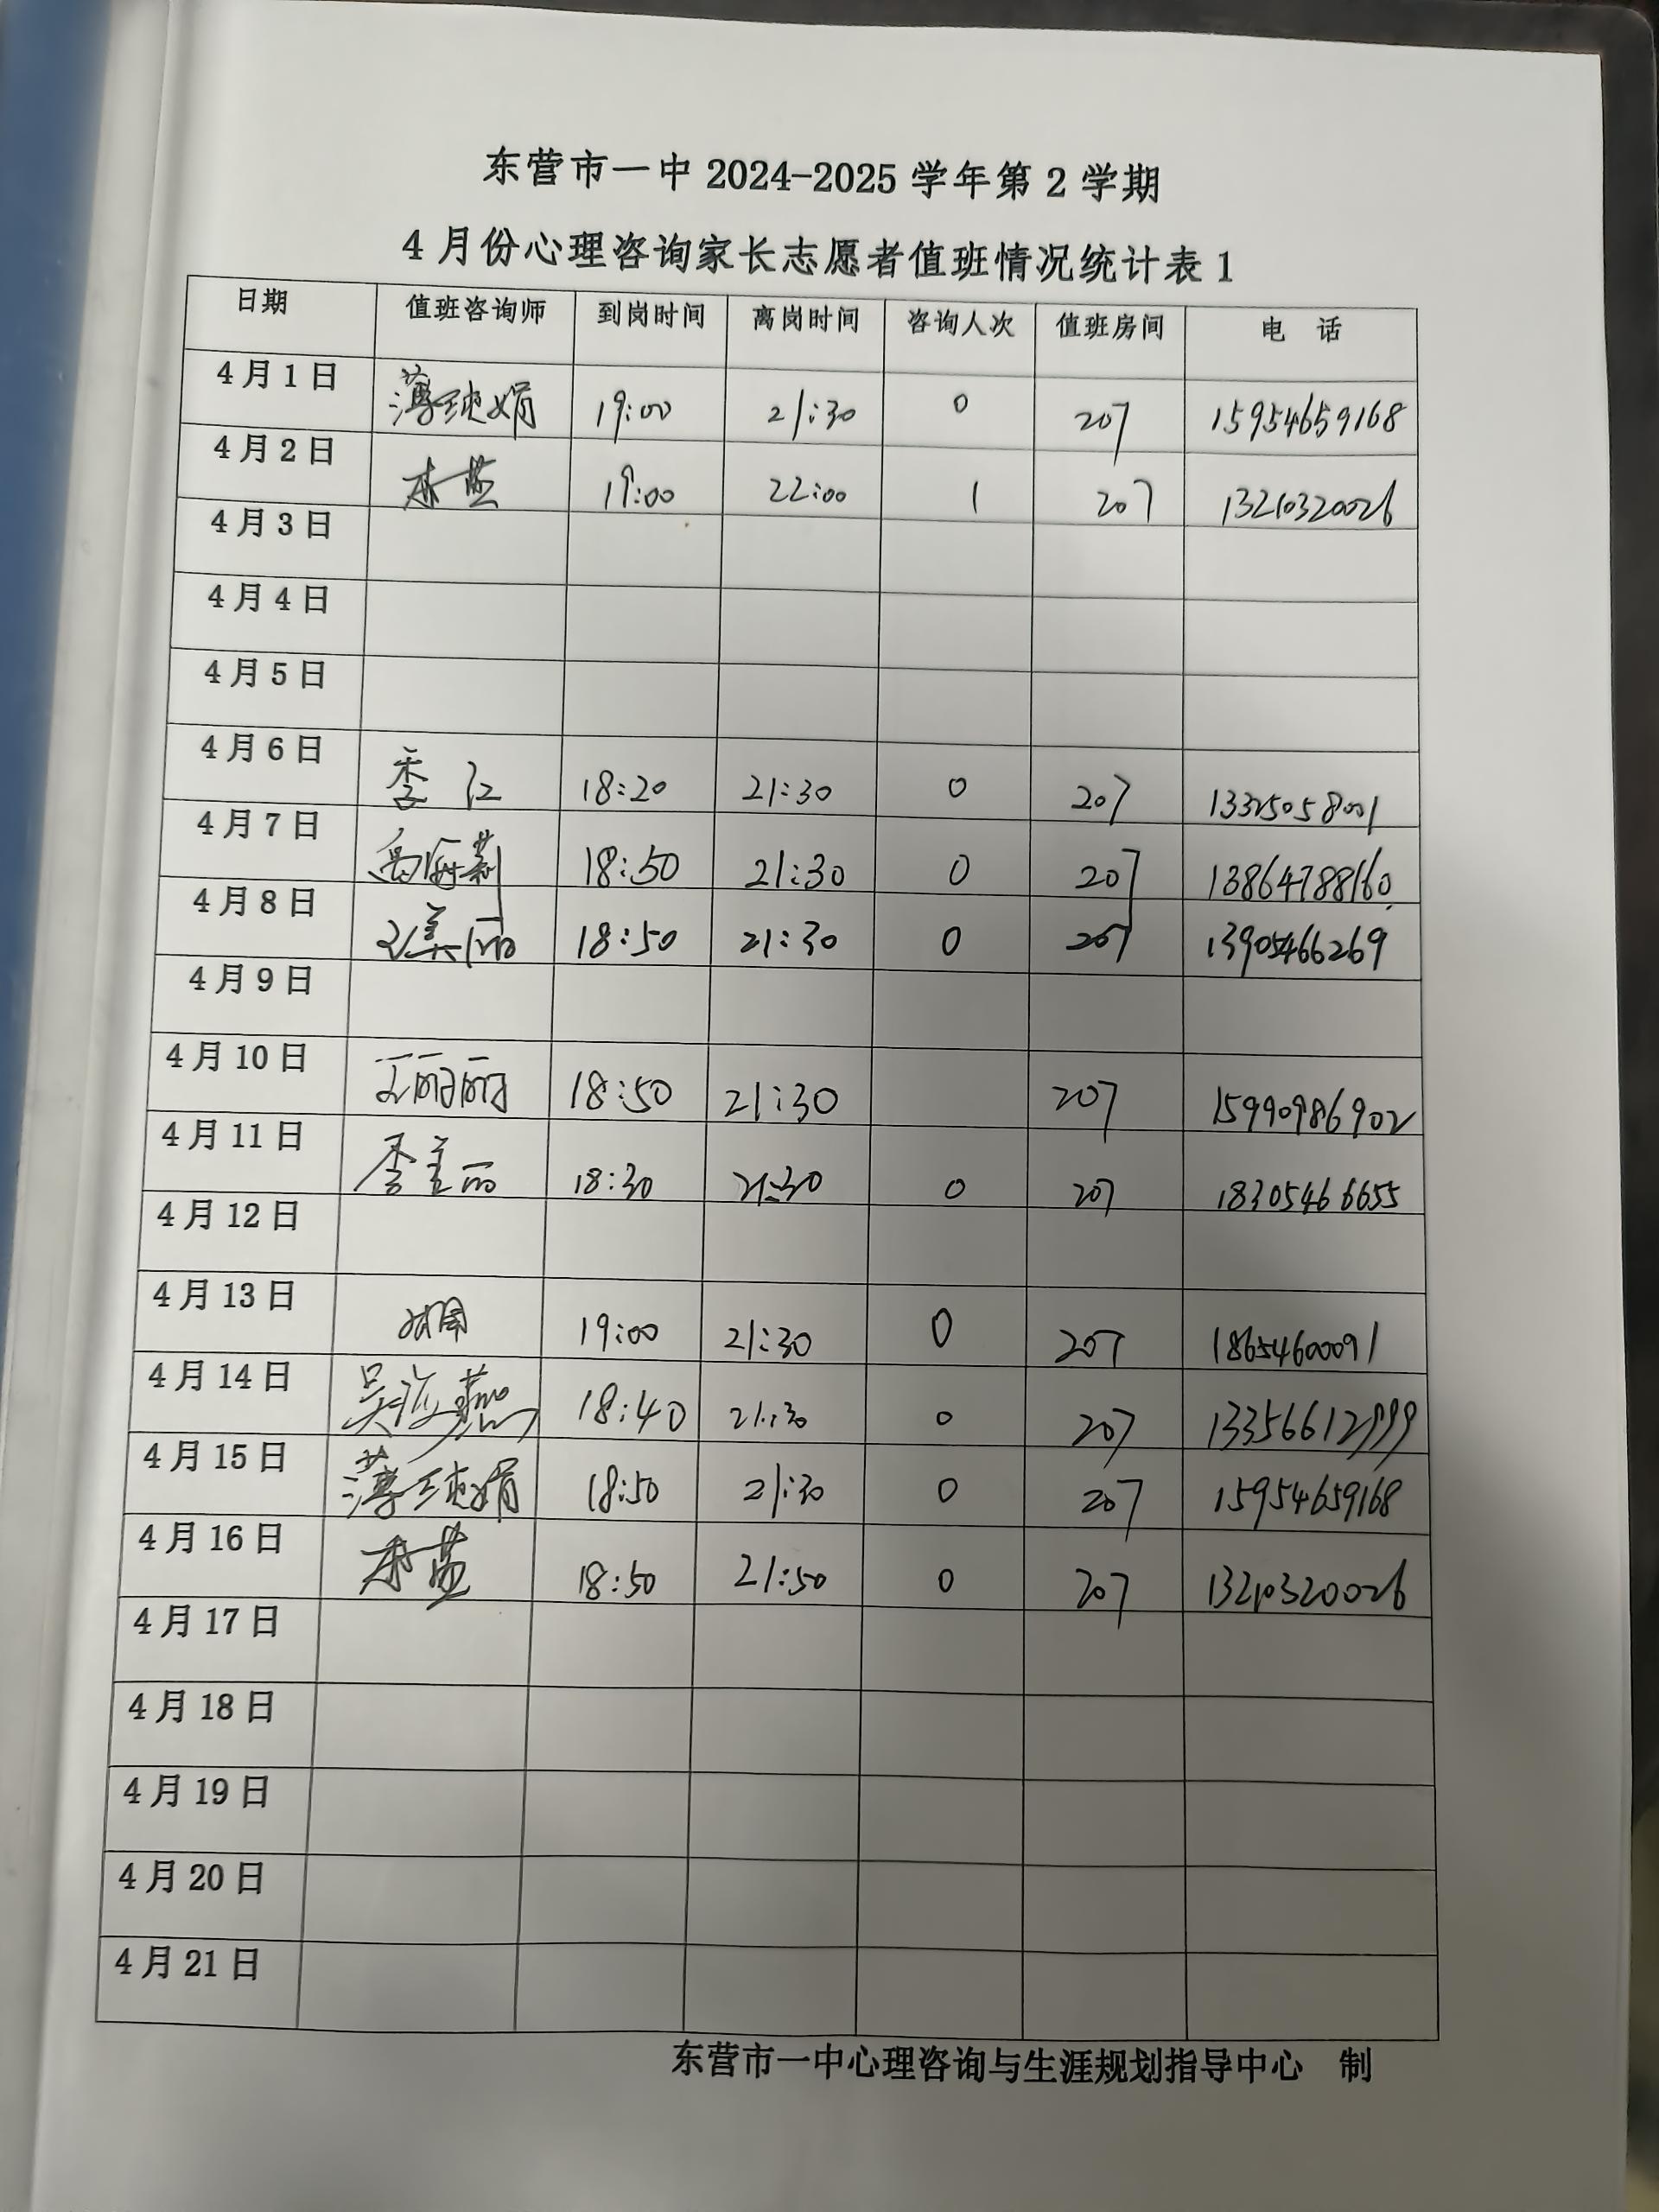 东营市一中 2024-2025 学年第 2 学期
4 月份心理咨询家长志愿者值班情况统计表 1
日期 值班咨询师 到岗时间 离岗时间 咨询人次 值班房间 电 话
4 月 1 日 薄纯娟 19:00 21:30 0 207 15954659168
4 月 2 日 19:00 22:00 1 207 13210320026
4 月 3 日
4 月 4 日
4 月 5 日
4 月 6 日 李 红 18:20 21:30 0 207 13325058001
4 月 7 日 18:50 21:30 0 207 13864788160
4 月 8 日 美丽 18:50 21:30 0 207 13905466269
4 月 9 日
4 月 10 日 王丽丽 18:50 21:30 207 15990986902
4 月 11 日 李美丽 18:30 21:30 0 207 18305466655
4 月 12 日
4 月 13 日 19:00 21:30 0 207 18654600091
4 月 14 日 吴海燕 18:40 21:30 0 207 13356612999
4 月 15 日 薄纯娟 18:50 21:30 0 207 15954659168
4 月 16 日 18:50 21:50 0 207 13210320026
4 月 17 日
4 月 18 日
4 月 19 日
4 月 20 日
4 月 21 日
东营市一中心理咨询与生涯规划指导中心 制